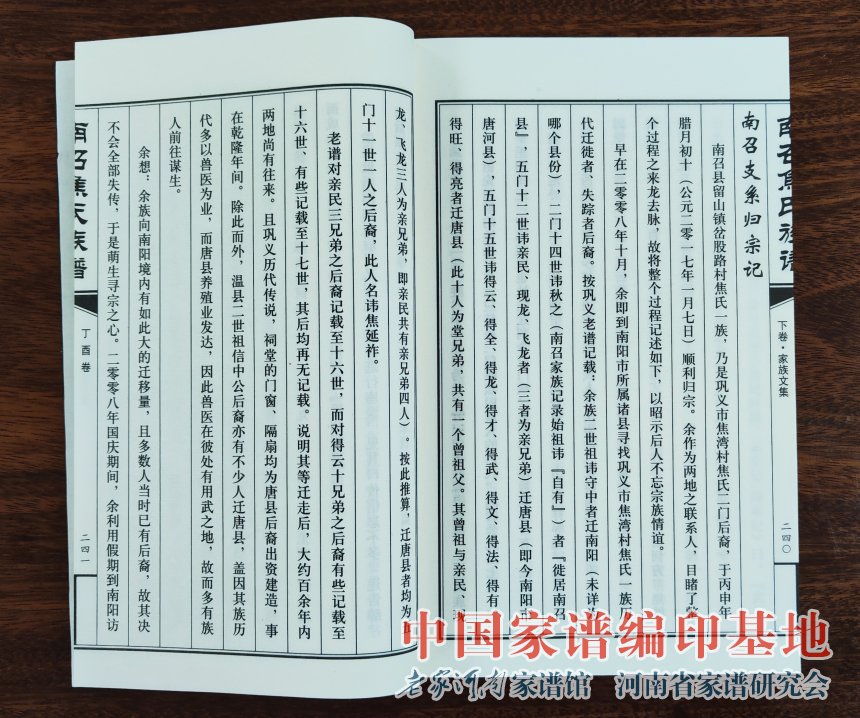 南召焦氏族谱
下卷·家族文集
二四〇
南召支系归宗记
南召县留山镇岔股路村焦氏一族，乃是巩义市焦湾村焦氏二门后裔，于丙申年
腊月初十（公元二零一七年一月七日）顺利归宗。余作为两地之联系人，目睹了
个过程之来龙去脉，故将整个过程记述如下，以昭示后人不忘宗族情谊。
早在二零零八年十月，余即到南阳市所属诸县寻找巩义市焦湾村焦氏一族历
代迁徙者、失踪者后裔。按巩义老谱记载：余族二世祖讳守中者迁南阳（未详
哪个县份），二门十四世讳秋之（南召家族记录始祖讳『自有』）者『徙居南召
县』，五门十二世讳亲民、现龙、飞龙者（三者为亲兄弟）迁唐县（即今南阳市
唐河县），五门十五世讳得云、得全、得龙、得才、得武、得文、得法、得有
得旺、得亮者迁唐县（此十人为堂兄弟，共有一个曾祖父。其曾祖与亲民、现
龙、飞龙三人为亲兄弟，即亲民共有亲兄弟四人）。按此推算，迁唐县者均为
门十一世一人之后裔，此人名讳焦延祚。
老谱对亲民三兄弟之后裔记载至十六世，而对得云十兄弟之后裔有些记载至
十六世、有些记载至十七世，其后均再无记载。说明其等迁走后，大约百余年内
两地尚有往来。且巩义历代传说，祠堂的门窗、隔扇均为唐县后裔出资建造，事
在乾隆年间。除此而外，温县二世祖信中公后裔亦有不少人迁唐县，盖因其族历
代多以兽医为业，而唐县养殖业发达，因此兽医在彼处有用武之地，故而多有族
人前往谋生。
余想：余族向南阳境内有如此大的迁移量，且多数人当时已有后裔，故其决
不会全部失传，于是萌生寻宗之心。二零零八年国庆期间，余利用假期到南阳访
南召焦氏族谱
丁酉卷
二四一
中国家谱编印基地
老家河南家谱馆 河南省家谱研究会